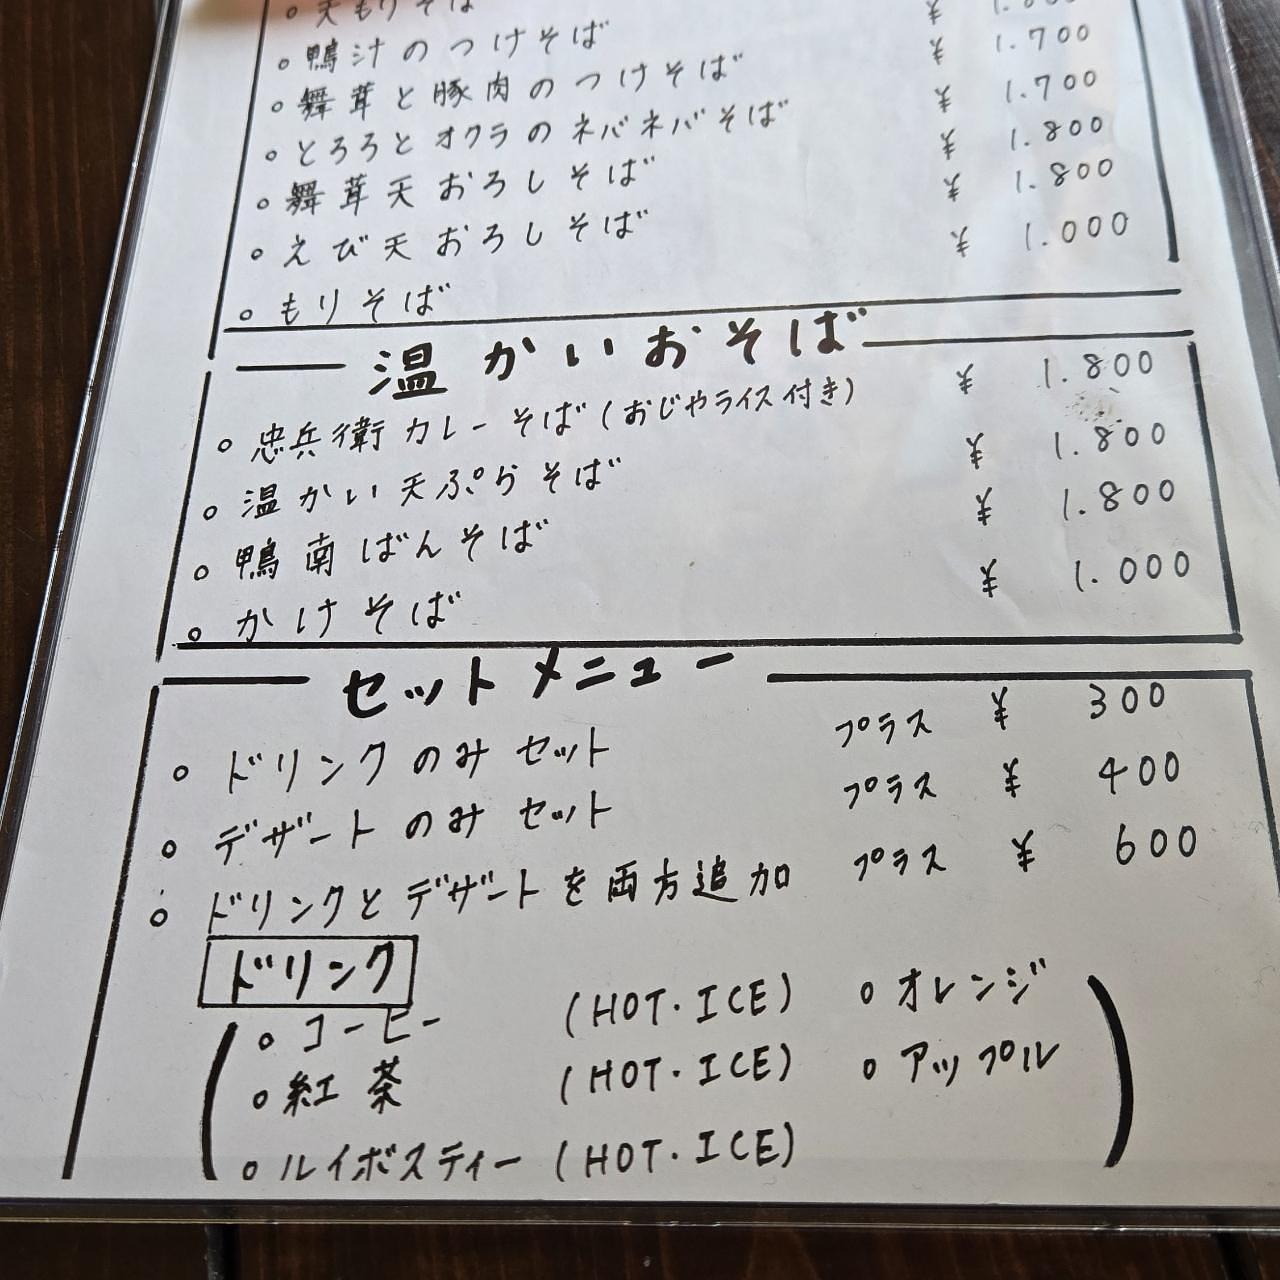 。天もりそば
。鴨汁のつけそば ¥
。舞茸と豚肉のつけそば ¥ 1.700
。とろろとオクラのネバネバそば ¥ 1.700
。舞茸天おろしそば ¥ 1.800
。えび天おろしそば ¥ 1.800
。もりそば ¥ 1.000
温かいおそば
。忠兵衛カレーそば(おじやライス付き) ¥ 1.800
。温かい天ぷらそば ¥ 1.800
。鴨南ばんそば ¥ 1.800
。かけそば ¥ 1.000
セットメニュー
。ドリンクのみセット プラス ¥ 300
。デザートのみセット プラス ¥ 400
。ドリンクとデザートを両方追加 プラス ¥ 600
ドリンク
。コーヒー (HOT・ICE) 。オレンジ
。紅茶 (HOT・ICE) 。アップル
。ルイボスティー (HOT・ICE)